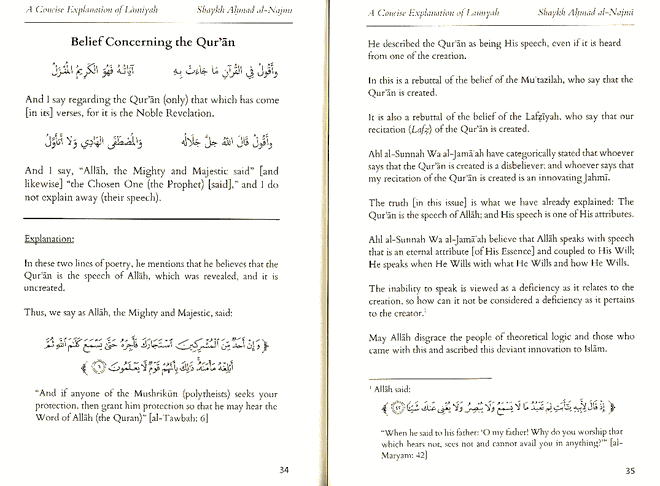 A Concise Explanation of Lāmiyah Shaykh Aḥmad al-Najmī
Belief Concerning the Qur'ān
وَأَقُولُ فِي القُرْآنِ مَا جَاءَتْ بِهِ آيَاتُهُ فَهُوَ الكَرِيمُ المُنْزَلُ
And I say regarding the Qur'ān (only) that which has come
[in its] verses, for it is the Noble Revelation.
وَأَقُولُ قَالَ اللهُ جَلَّ جَلَالُهُ وَالمُصْطَفَى الهَادِي وَلَا أَتَأَوَّلُ
And I say, "Allāh, the Mighty and Majestic said" [and
likewise] "the Chosen One (the Prophet) [said]," and I do
not explain away (their speech).
Explanation:
In these two lines of poetry, he mentions that he believes that the
Qur'ān is the speech of Allāh, which was revealed, and it is
uncreated.
Thus, we say as Allāh, the Mighty and Majestic, said:
﴿ وَإِنْ أَحَدٌ مِّنَ الْمُشْرِكِينَ اسْتَجَارَكَ فَأَجِرْهُ حَتَّىٰ يَسْمَعَ كَلَامَ اللَّهِ ثُمَّ
أَبْلِغْهُ مَأْمَنَهُ ذَٰلِكَ بِأَنَّهُمْ قَوْمٌ لَّا يَعْلَمُونَ ٦ ﴾
"And if anyone of the Mushrikūn (polytheists) seeks your
protection, then grant him protection so that he may hear the
Word of Allāh (the Quran)" [al-Tawbah: 6]
34
A Concise Explanation of Lāmiyah Shaykh Aḥmad al-Najmī
He described the Qur'ān as being His speech, even if it is heard
from one of the creation.
In this is a rebuttal of the belief of the Mu'tazilah, who say that the
Qur'ān is created.
It is also a rebuttal of the belief of the Lafẓīyah, who say that our
recitation (Lafẓ) of the Qur'ān is created.
Ahl al-Sunnah Wa al-Jamā'ah have categorically stated that whoever
says that the Qur'ān is created is a disbeliever; and whoever says that
my recitation of the Qur'ān is created is an innovating Jahmī.
The truth [in this issue] is what we have already explained: The
Qur'ān is the speech of Allāh; and His speech is one of His attributes.
Ahl al-Sunnah Wa al-Jamā'ah believe that Allāh speaks with speech
that is an eternal attribute [of His Essence] and coupled to His Will;
He speaks when He Wills with what He Wills and how He Wills.
The inability to speak is viewed as a deficiency as it relates to the
creation, so how can it not be considered a deficiency as it pertains
to the creator.¹
May Allāh disgrace the people of theoretical logic and those who
came with this and ascribed this deviant innovation to Islām.
¹ Allāh said:
﴿ إِذْ قَالَ لِأَبِيهِ يَا أَبَتِ لِمَ تَعْبُدُ مَا لَا يَسْمَعُ وَلَا يُبْصِرُ وَلَا يُغْنِي عَنكَ شَيْئًا ٤٢ ﴾
"When he said to his father: 'O my father! Why do you worship that
which hears not, sees not and cannot avail you in anything?'" [al-
Maryam: 42]
35